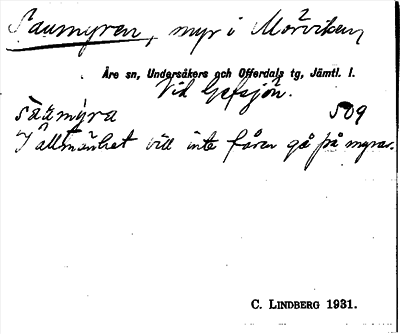 Saumyren, myr i Mörviken
Åre sn, Undersåkers och Offerdals tg, Jämtl. l.
Vid Gefsjön.
sàumýra 509
I allmänhet vill inte fåren gå på myrar.
C. LINDBERG 1931.